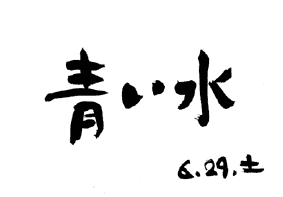 青い水
6.29.土